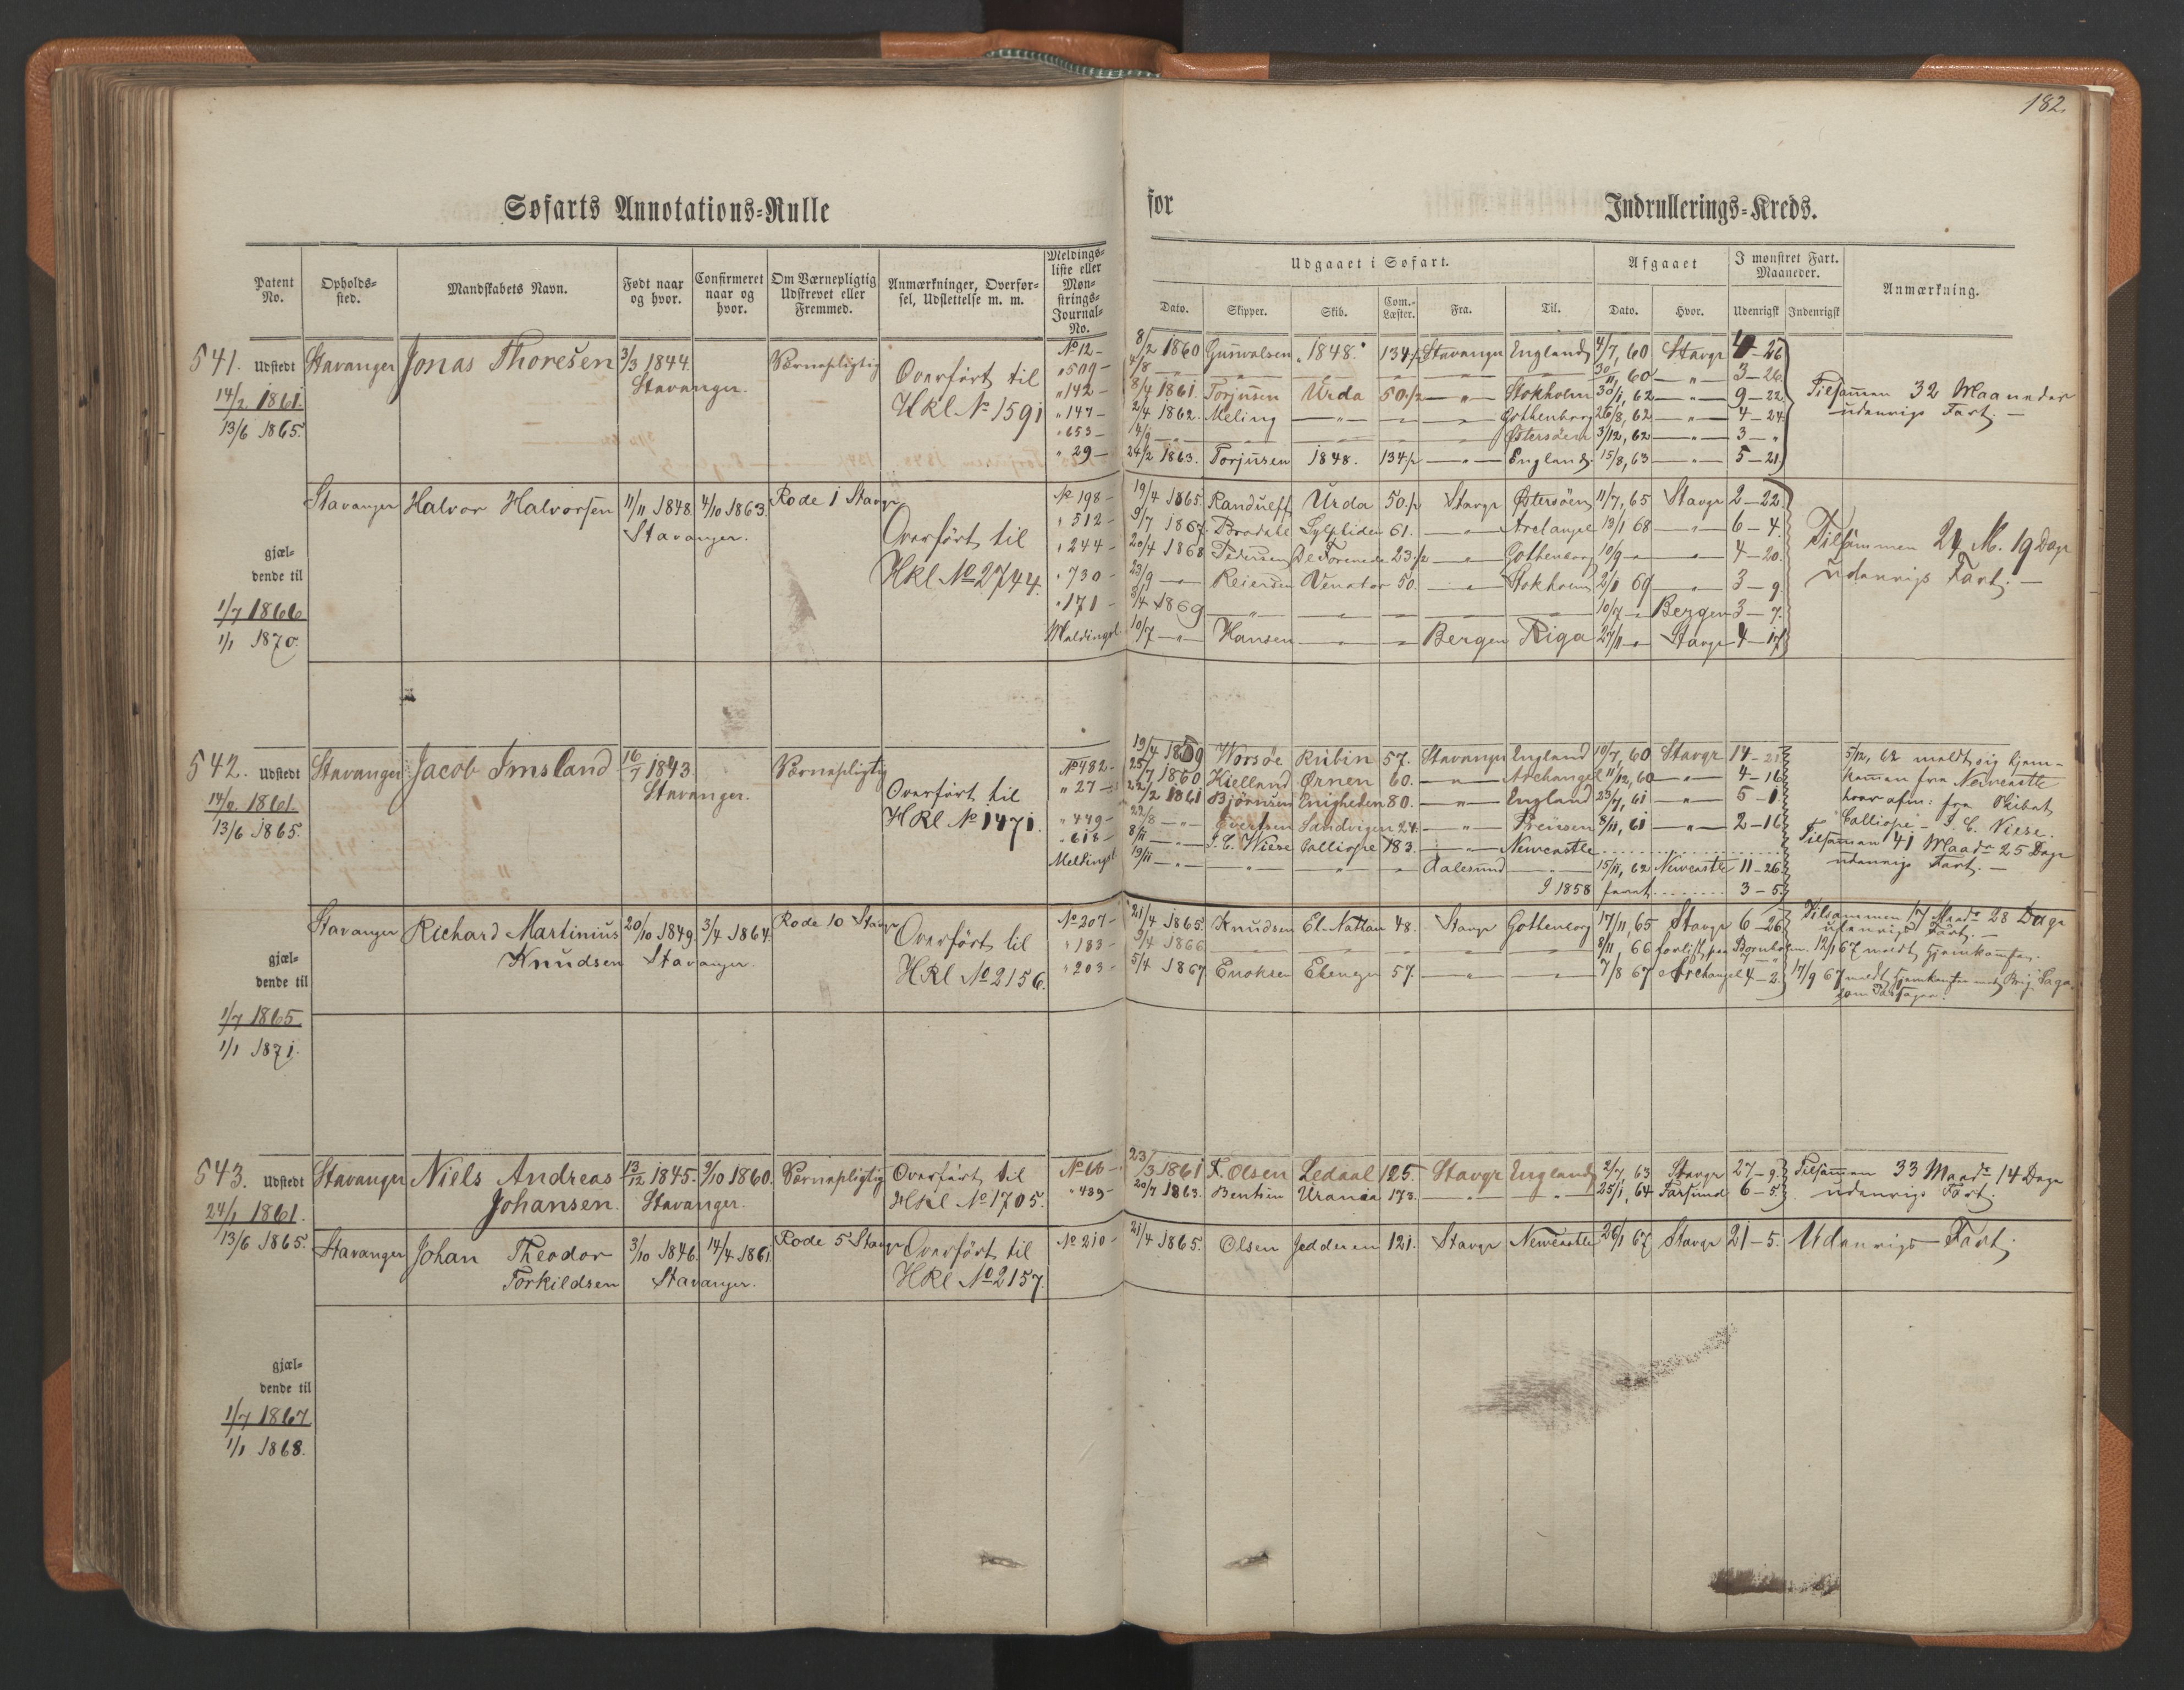 182.
Søfarts Annotations=Rulle for Indrullerings=Kreds.
Patent No.
Opholds=sted.
Mandskabets Navn.
Født naar og hvor.
Confirmeret naar og hvor.
Om Værnepligtig Udskrevet eller Fremmed.
Anmærkninger, Overførsel, Udslettelse m. m.
Meldings=liste eller Mønstrings=Journal=No.
Udgaaet i Søfart.
Dato. Skipper. Skib. Com.=Læster. Fra. Til.
Afgaaet
Dato. Hvor.
I mønstret Fart. Maaneder.
Udenrigsk Indenrigsk
Anmærkning.
541. Udstedt Stavanger Jonas Thoresen 3/3 1844. Stavanger. Værnepligtig Overført til HRL No 1591
14/2 1861.
13/6 1865.
No 12 - 8/2 1860 Gunvalsen "1848." 134 1/2 Stavanger England 4/7, 60 Stavgr 4-26
" 509 - 4/8 — " — 30/11, 60 — " — 3-26.
" 142 - 8/4 1861. Torjusen Urda 50 1/2 — " — Stokholm 30/1, 62 — " — 9-22
" 147 - 2/4 1862. Meling — " — Gothenborg 26/8, 62 — " — 4-24
" 653 - 14/9 — " — Østersøen 3/12, 62 — " — 3 - "
" 29 - 24/2 1863. Torjusen 1848. 134 1/2 — " — England. 15/8, 63 — " — 5-21
Tilsammen 32 Maaneder
udenrigs Fart. —
Stavanger Halvor Halvorsen 11/11 1848. 4/10 1863. Stavanger. Rode 1 Stavgr Overført til HRL No 2744.
gjæl=
dende til
1/7 1866
1/1 1870.
No 198 - 19/4 1865. Randulff Urda 50 1/2 Stavgr Østersøen 11/7, 65 Stavgr 2-22.
" 512 - 9/7 1867. Brodahl Sylphiden 61. — " — Archangel 13/1 68 — " — 6-4.
" 244 - 20/4 1868 Pedersen De Forenede 23 1/2 — " — Gothenborg 10/9 — " — 4-20.
" 730 - 23/9 — " — Reiersen Venator 50. — " — Stokholm 2/1 69 — " — 3-9.
" 171 - 3/4 1869 — " — 10/7 — " — Bergen 3-7.
Meldingsl. 10/7 — " — Hansen — " — Bergen Riga 27/11 — " — Stavgr 4-17
Tilsammen 24 M. 19 Dage
udenrigs Fart. —
542. Udstedt Stavanger Jacob Imsland 16/7 1843 Stavanger. Værnepligtig Overført til HRL No 1471.
14/2 1861.
13/6 1865.
No 482 - 19/4 1859 Worsøe Rubin 57. Stavanger England 10/7, 60 Stavgr 14-21
25/7 1860 Kielland Ørnen 60. — " — Archangel 11/12, 60 — " — 4-16
" 27 - 22/2 1861 Bjørnsen Enigheden 80. — " — England 23/7, 61 — " — 5-1.
" 449 - 22/8 — " — Evertsen Sandvigen 24. — " — Preusen 8/11, 61 — " — 2-16
" 618 - 8/11 — " — I. C. Wiese Calliope 183. — " — Newcastle
Meldingsl. 19/11 — " — Aalesund — " — 15/11, 62 Newcastle 11-26
I 1858 faret 3-5.
5/12, 62 meldt sig hjem=
kommen fra Newcastle
hvor afm: fra Skibet
Calliope - I. C. Wiese.
Tilsammen 41 Maadr 25 Dage
udenrigs Fart. —
Stavanger Richard Martinius Knudsen 20/10 1849. 3/4 1864. Stavanger. Rode 10 Stavgr Overført til HRL No 2156.
gjæl=
dende til
1/7 1865.
1/1 1871.
No 207 - 21/4 1865. Knudsen El. Nathan 48. Stavgr Gothenborg 17/11, 65 Stavgr 6-26
" 183 - 3/4 1866 — " — 8/11 66 forlist paa Bornholm. 12/1 67 meldt hjemkommen.
" 203 - 5/4 1867 Enoksen Ebenezer 57 — " — 7/8 67 Archangel 4-2. 17/9 67 meldt hjemkommen med Brig. Saga
som Passager.
Tilsammen 17 Maadr 28 Dage
udenrigs Fart. —
543. Udstedt Stavanger Niels Andreas Johansen. 13/12 1845. 9/10 1860. Stavanger. Værnepligtig Overført til HRL No 1705.
24/1 1861.
13/6 1865.
No 66 - 23/3 1861 F. Olsen Ledaal 125. Stavgr England 2/7, 63 Stavgr 27-9.
" 439 - 20/7 1863. Bentsen Urania 173. — " — 25/1, 64 Farsund 6-5.
Tilsammen 33 Maadr 14 Dage
udenrigs Fart.
Stavanger Johan Theodor Torkildsen 3/10 1846. 14/4 1861. Stavanger. Rode 5 Stavgr Overført til HRL No 2157.
No 210 - 21/4 1865. Olsen Jedderen 121. Stavgr Newcastle 26/1 67 Stavgr 21-5. Udenrigs Fart.
gjæl=
dende til
1/7 1867
1/1 1868.